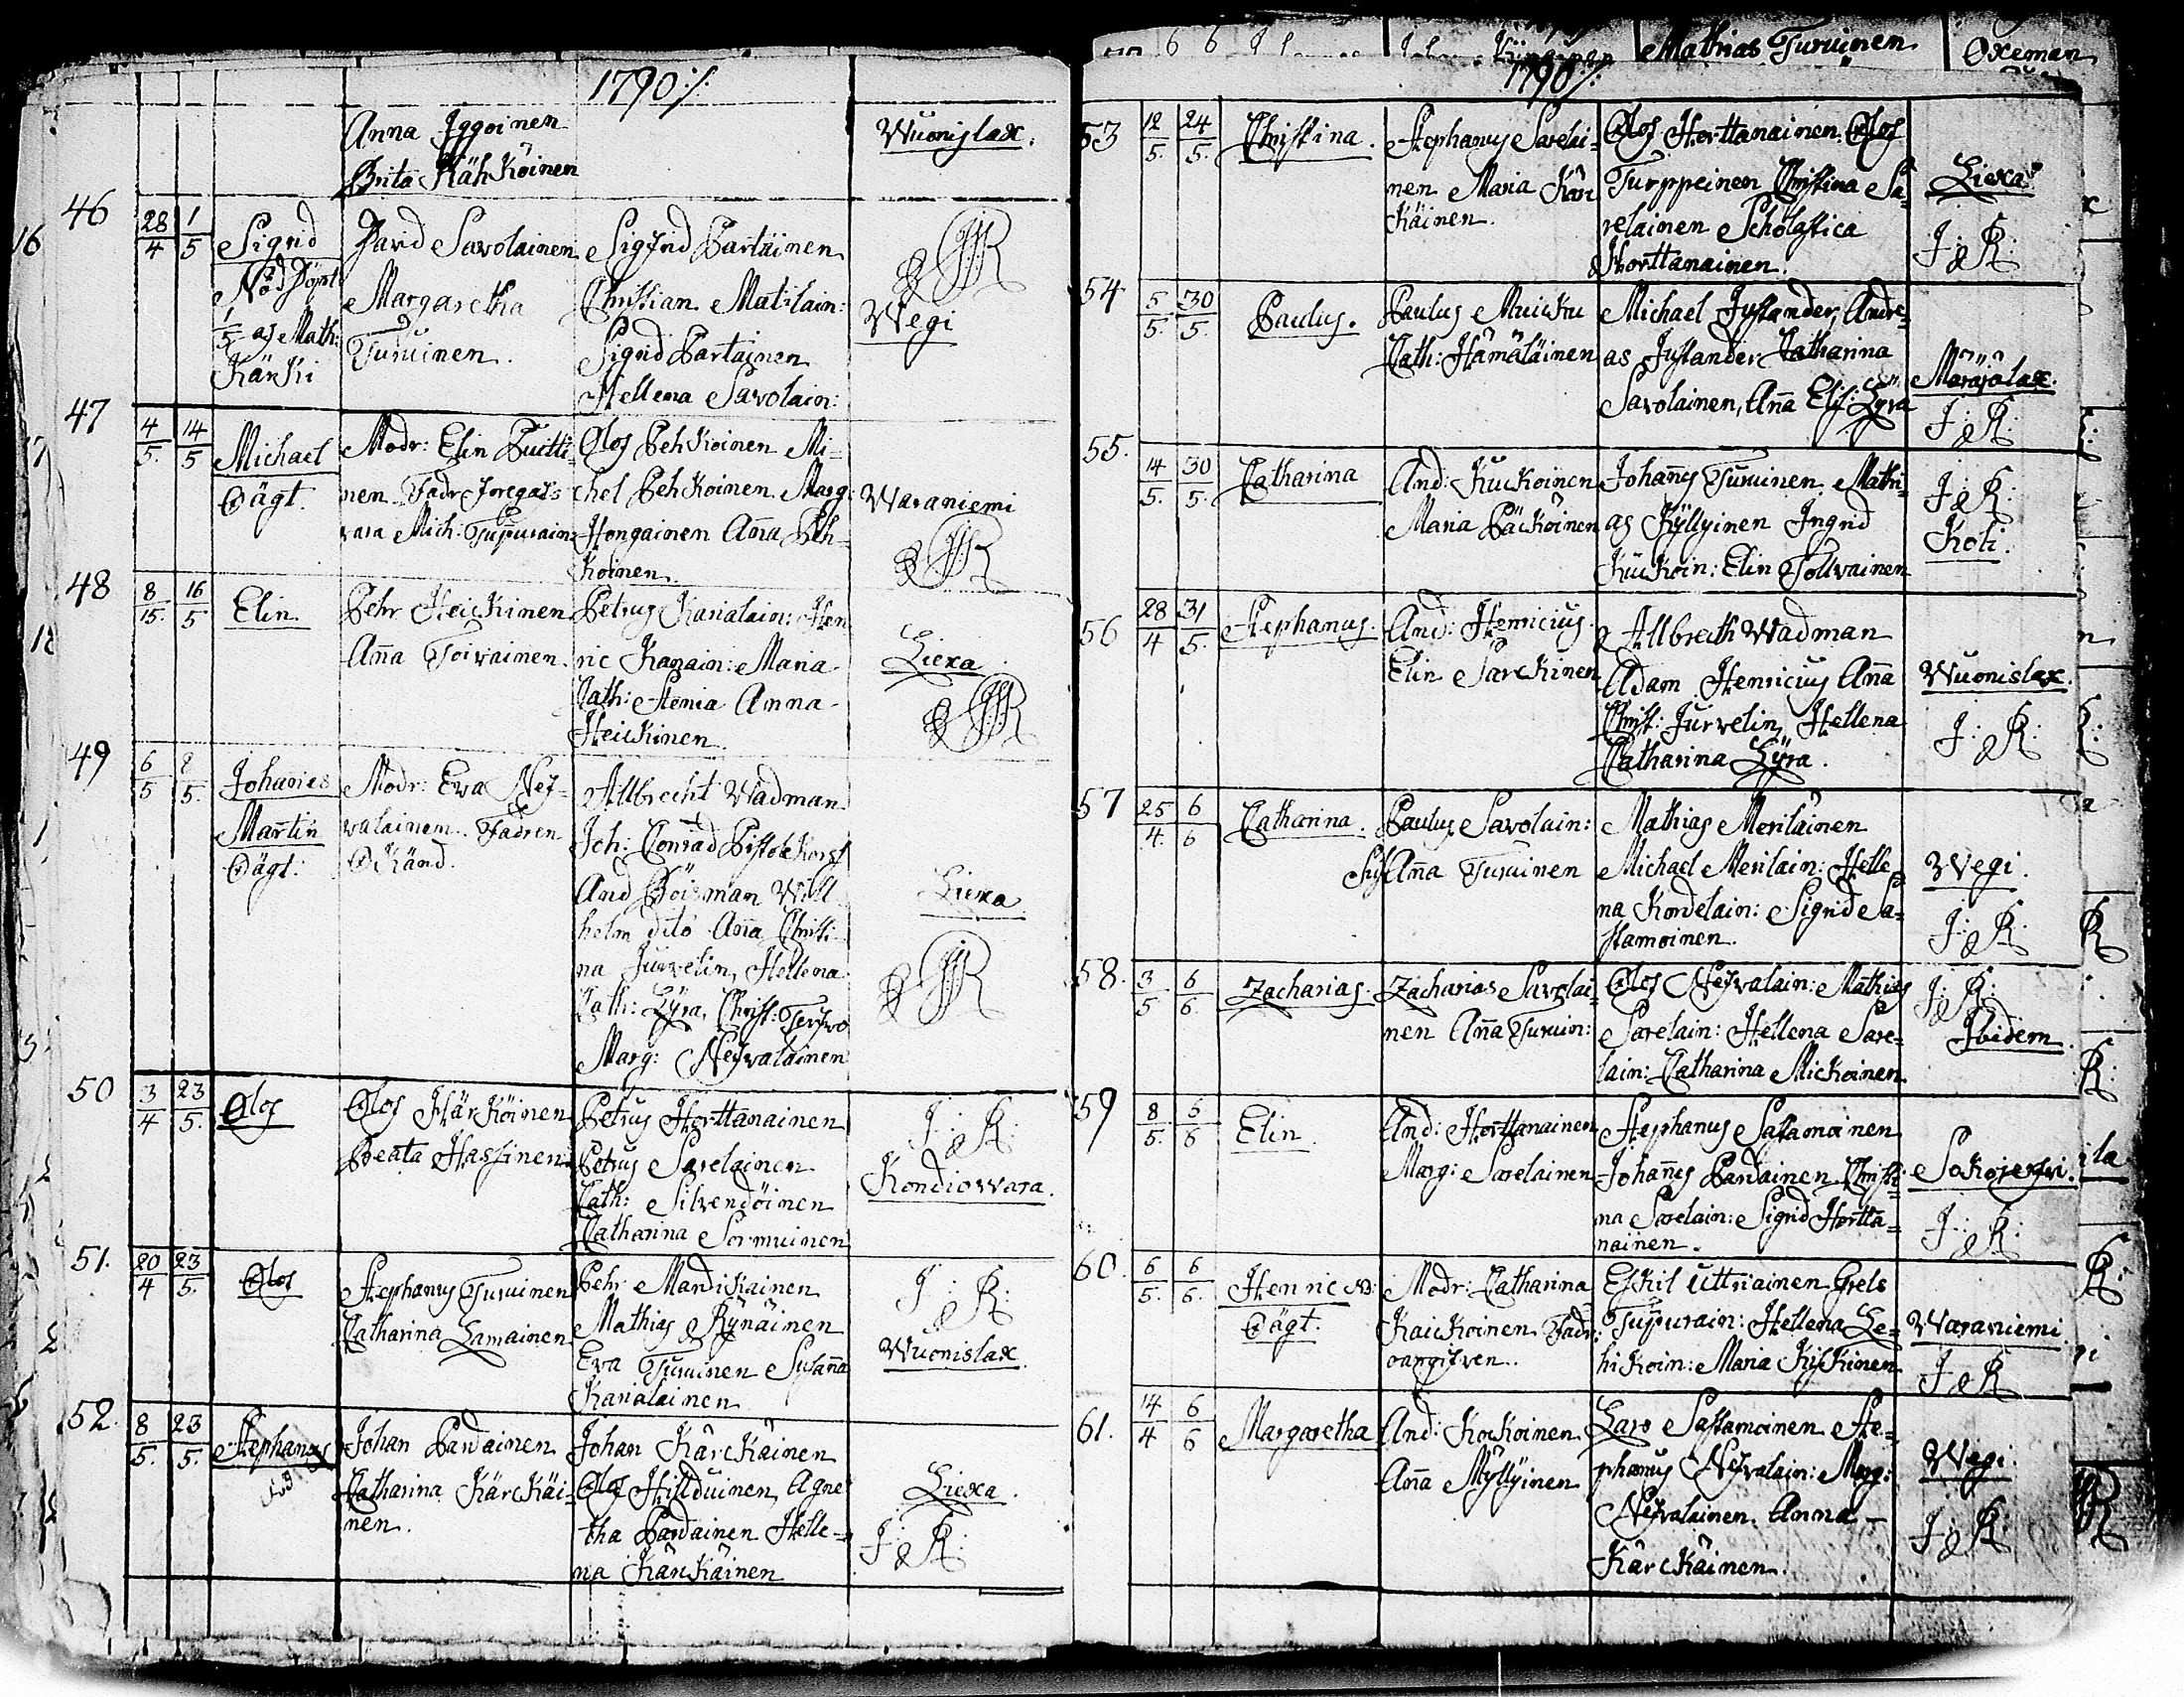 1790 ./.
Anna Iggoinen
Brita Kähköinen
Wuonislax.
46
28/4 1/5
Sigrid
Nöd Döpt
1/5 af Math:
Kärki
David Savolainen
Margaretha
Turuinen.
Sigfrid Partäinen
Christian Matilain:
Sigrid Partainen
Hellena Savolain:
Wegi
47
4/5. 14/5
Michael
Oägt.
Modr: Elin Puitti-
nen Fadr foregafs
vara Mich. Tupurain:
Olof Pehkoinen Mi-
chel Pehkoinen Marg:
Hongainen Aña Peh-
koinen.
Waraniemi
48
8/15. 16/5
Elin
Pehr Heickinen
Aña Toivainen.
Petrus Karialain: Hen
ric Kanain: Maria
Cath: Stenia Anna
Heickinen.
Liexa
49
6/5
Johannes
Martin
Oägt:
Modr: Eva Nef-
valainen. Fadren
Okänd.
Allbrecht Wadman
Joh: Conrad Pistolekors
And Böisman Will
helm dito Aña Christi-
na Jurvelin, Hellena
Cath: Lÿra, Christ:
Marg: Nefvalainen
Liexa
50
3/4 23/5.
Olof
Olof Härköinen
Beata Hassinen
Petrus Horttanainen
Petrus Sarelainen
Cath: Silvendöinen
Catharina Sormuinen
J: R:
Kondiovara.
51.
20/4 23/5.
Olof
Stephanus Turuinen
Catharina Lamainen
Pehr Mandikainen
Mathias Rÿnäinen
Eva Turuinen Susaña
Karialainen
J: R:
Wuonislax.
52.
8/5. 23/5.
Stephanus
Johan Pardainen
Catharina Kärckäi-
nen.
Johan Kärckäinen
Olof Hillduinen, Agne
tha Pardainen Helle-
na Kärckäinen
Liexa.
J: R:
6 6
Mathias Turuinen
Oxeman
1790 ./.
53
12/5. 24/5.
Christina.
Stephanus Sarelai-
nen Maria Kär
käinen.
Olof Horttanainen. Olof
Turppeinen Christina Sa-
relainen Scholastica
Horttanainen.
Liexa
J: R:
54
5/5. 30/5.
Paulus.
Paulus Muicku
Cath: Hämäläinen
Michael Juslander, Andre-
as Juslander Catharina
Savolainen, Aña Elis: Lÿra
Märäjälax.
J: R:
55.
14/5. 30/5.
Catharina
And: Kuckoinen
Maria Päckoinen
Johañes Turuinen Mathi-
as Kyllyinen Ingrid
Kuckoin: Elin Tollvainen
J: R:
Koli.
56
28/4 31/5.
Stephanus.
And: Henricius
Elin Särckinen
Allbrecth Wadman
Adam Henricius Aña
Christ: Jurvelin, Hellena
Catharina Lÿra.
Wuonislax.
J: R:
57
25/4. 6/6
Catharina.
Paulus Savolain:
Aña Turuinen
Mathias Meriläinen
Michael Merilain: Helle-
na Kordelain: Sigrid Sa-
stamoinen.
Wegi.
J: R:
58.
3/5 6/6.
Zacharias.
Zacharias Savolai-
nen Aña Turuin:
Olof Nefvalain: Mathias
Sarelain: Hellena Sare-
lain: Catharina Mickoinen
J: R:
Ibidem.
59
8/5. 6/6
Elin.
And: Horttanainen
Marg: Sarelainen
Stephanus Sastamoinen
Johañes Pardainen Christi-
na Sarelain: Sigrid Hortta-
nainen.
Sokojerfvi.
J: R:
60.
6/5. 6/6.
Henric NB:
Oägt.
Modr: Catharina
Kaickoinen Fadr:
oangifven.
Eskil Uttriainen Grels
Tupurain: Hellena Le-
hikoin: Maria Kiskinen
Waraniemi
J: R
61.
14/4 6/6
Margaretha
And: Kockoinen
Aña Myllyinen
Lars Sastamoinen Ste-
phanus Nefvalain: Marg:
Nefvalainen. Anna
Kärckäinen.
Wegi.
J: R: